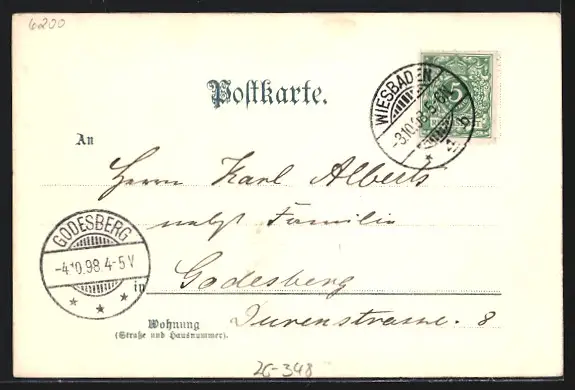 6200
Postkarte.
WIESBADEN
-3.10.98.5-6N.
1 b
5
An
Herrn Karl Alberts
nebst Familie
GODESBERG
-4.10.98 4-5 V
in Godesberg
Durenstrasse. 8
Wohnung
(Straße und Hausnummer).
26-348